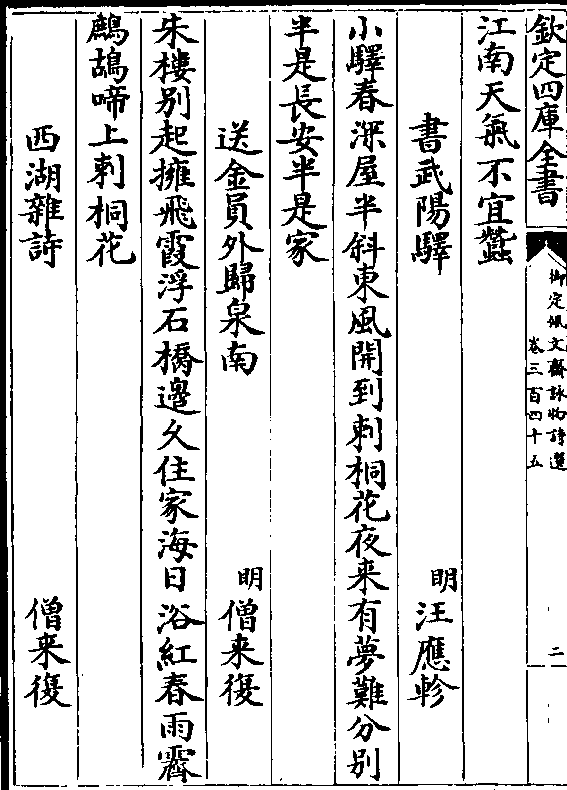 欽定四庫全書
御定佩文齋詠物詩選
卷三百四十五
二
江南天氣不宜蠶
書武陽驛
明
汪應軫
小驛春深屋半斜東風開到刺桐花夜来有夢難分別
半是長安半是家
送金員外歸泉南
明
僧来復
朱樓别起擁飛霞浮石橋邉久住家海日浴紅春雨霽
鷓鴣啼上刺桐花
西湖雜詩
僧来復